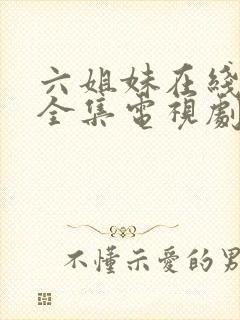 六姐妹在綫
全集電視劇
不懂示愛的男